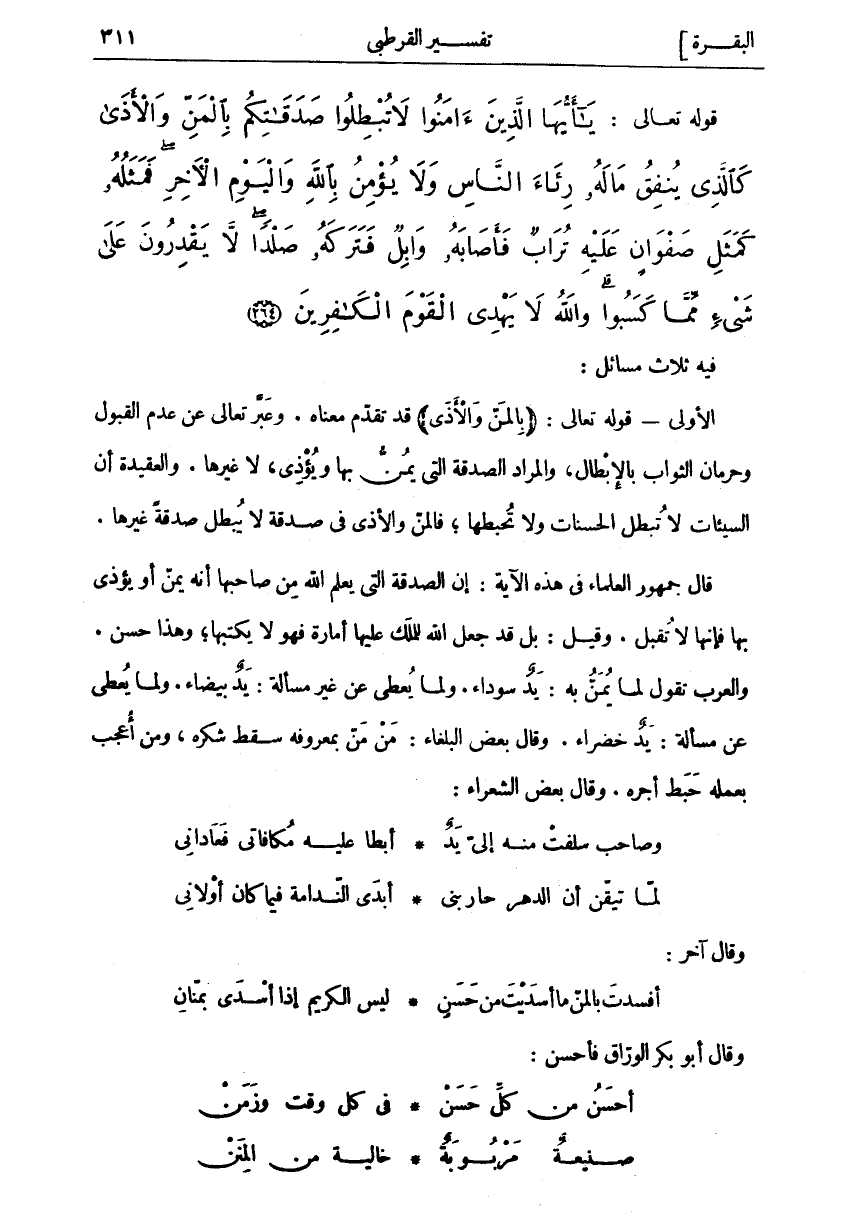 البقـــرة ]
تفســـير القرطبى
٣١١
قوله تعـالى : يَـٰٓأَيُّهَا الَّذِينَ ءَامَنُوا لَا تُبْطِلُوا صَدَقَـٰتِكُم بِٱلْمَنِّ وَالْأَذَىٰ
كَٱلَّذِى يُنفِقُ مَالَهُۥ رِئَآءَ النَّـاسِ وَلَا يُؤْمِنُ بِٱللَّهِ وَالْيَـوْمِ الْآخِرِ ۖ فَمَثَلُهُۥ
كَمَثَلِ صَفْوَانٍ عَلَيْهِ تُرَابٌ فَأَصَابَهُۥ وَابِلٌ فَتَرَكَهُۥ صَلْدًا ۖ لَّا يَقْدِرُونَ عَلَىٰ
شَىْءٍ مِّمَّـا كَسَبُوا ۗ وَاللَّهُ لَا يَهْدِى الْقَوْمَ الْكَـٰفِرِينَ ﴿٢٦٤﴾
فيه ثلاث مسائل :
الأولى — قوله تعالى : ﴿بِالمَنِّ وَالْأَذَى﴾ قد تقدّم معناه . وعَبَّر تعالى عن عدم القبول
وحرمان الثواب بالإبْطال، والمراد الصدقة التى يمُـنُّ بها ويُؤْذِى، لا غيرها . والعقيدة أن
السيئات لا تُبطل الحسنات ولا تُحبطها ؛ فالمنّ والأذى فى صـدقة لا يُبطل صدقةً غيرها .
قال جمهور العلماء فى هذه الآية : إن الصدقة التى يعلم الله مِن صاحبها أنه يمنّ أو يؤذى
بها فإنها لا تُقبل . وقيـل : بل قد جعل الله للملَك عليها أمارة فهو لا يكتبها؛ وهذا حسن .
والعرب تقول لمـا يُمَنُّ به : يَدٌ سوداء. ولمـا يُعطى عن غير مسألة : يَدٌ بيضاء. ولمـا يُعطى
عن مسألة : يَدٌ خضراء . وقال بعض البلغاء : مَنْ مَنّ بمعروفه سـقط شكره ، ومن أُعجب
بعمله حَبَط أجره . وقال بعض الشعراء :
وصاحب سلفتْ منـه إلىّ يَدٌ * أبطا عليــه مُكافاتى فعَادانِى
لمّـا تيقّن أن الدهـر حاربنى * أبدَى النّـدامة فيما كان أوْلانِى
وقال آخر :
أفسدتَ بالمنّ ما أسدَيْتَ من حَسَنٍ * ليس الكريم إذا أسْـدَى بمنّانِ
وقال أبو بكر الورّاق فأحسن :
أحسَنُ مـن كلِّ حَسَنْ * فى كل وقت وزَمَـنْ
صـنيعـةٌ مَرْبُـوبَةٌ * خاليـة مـن المِنَـنْ